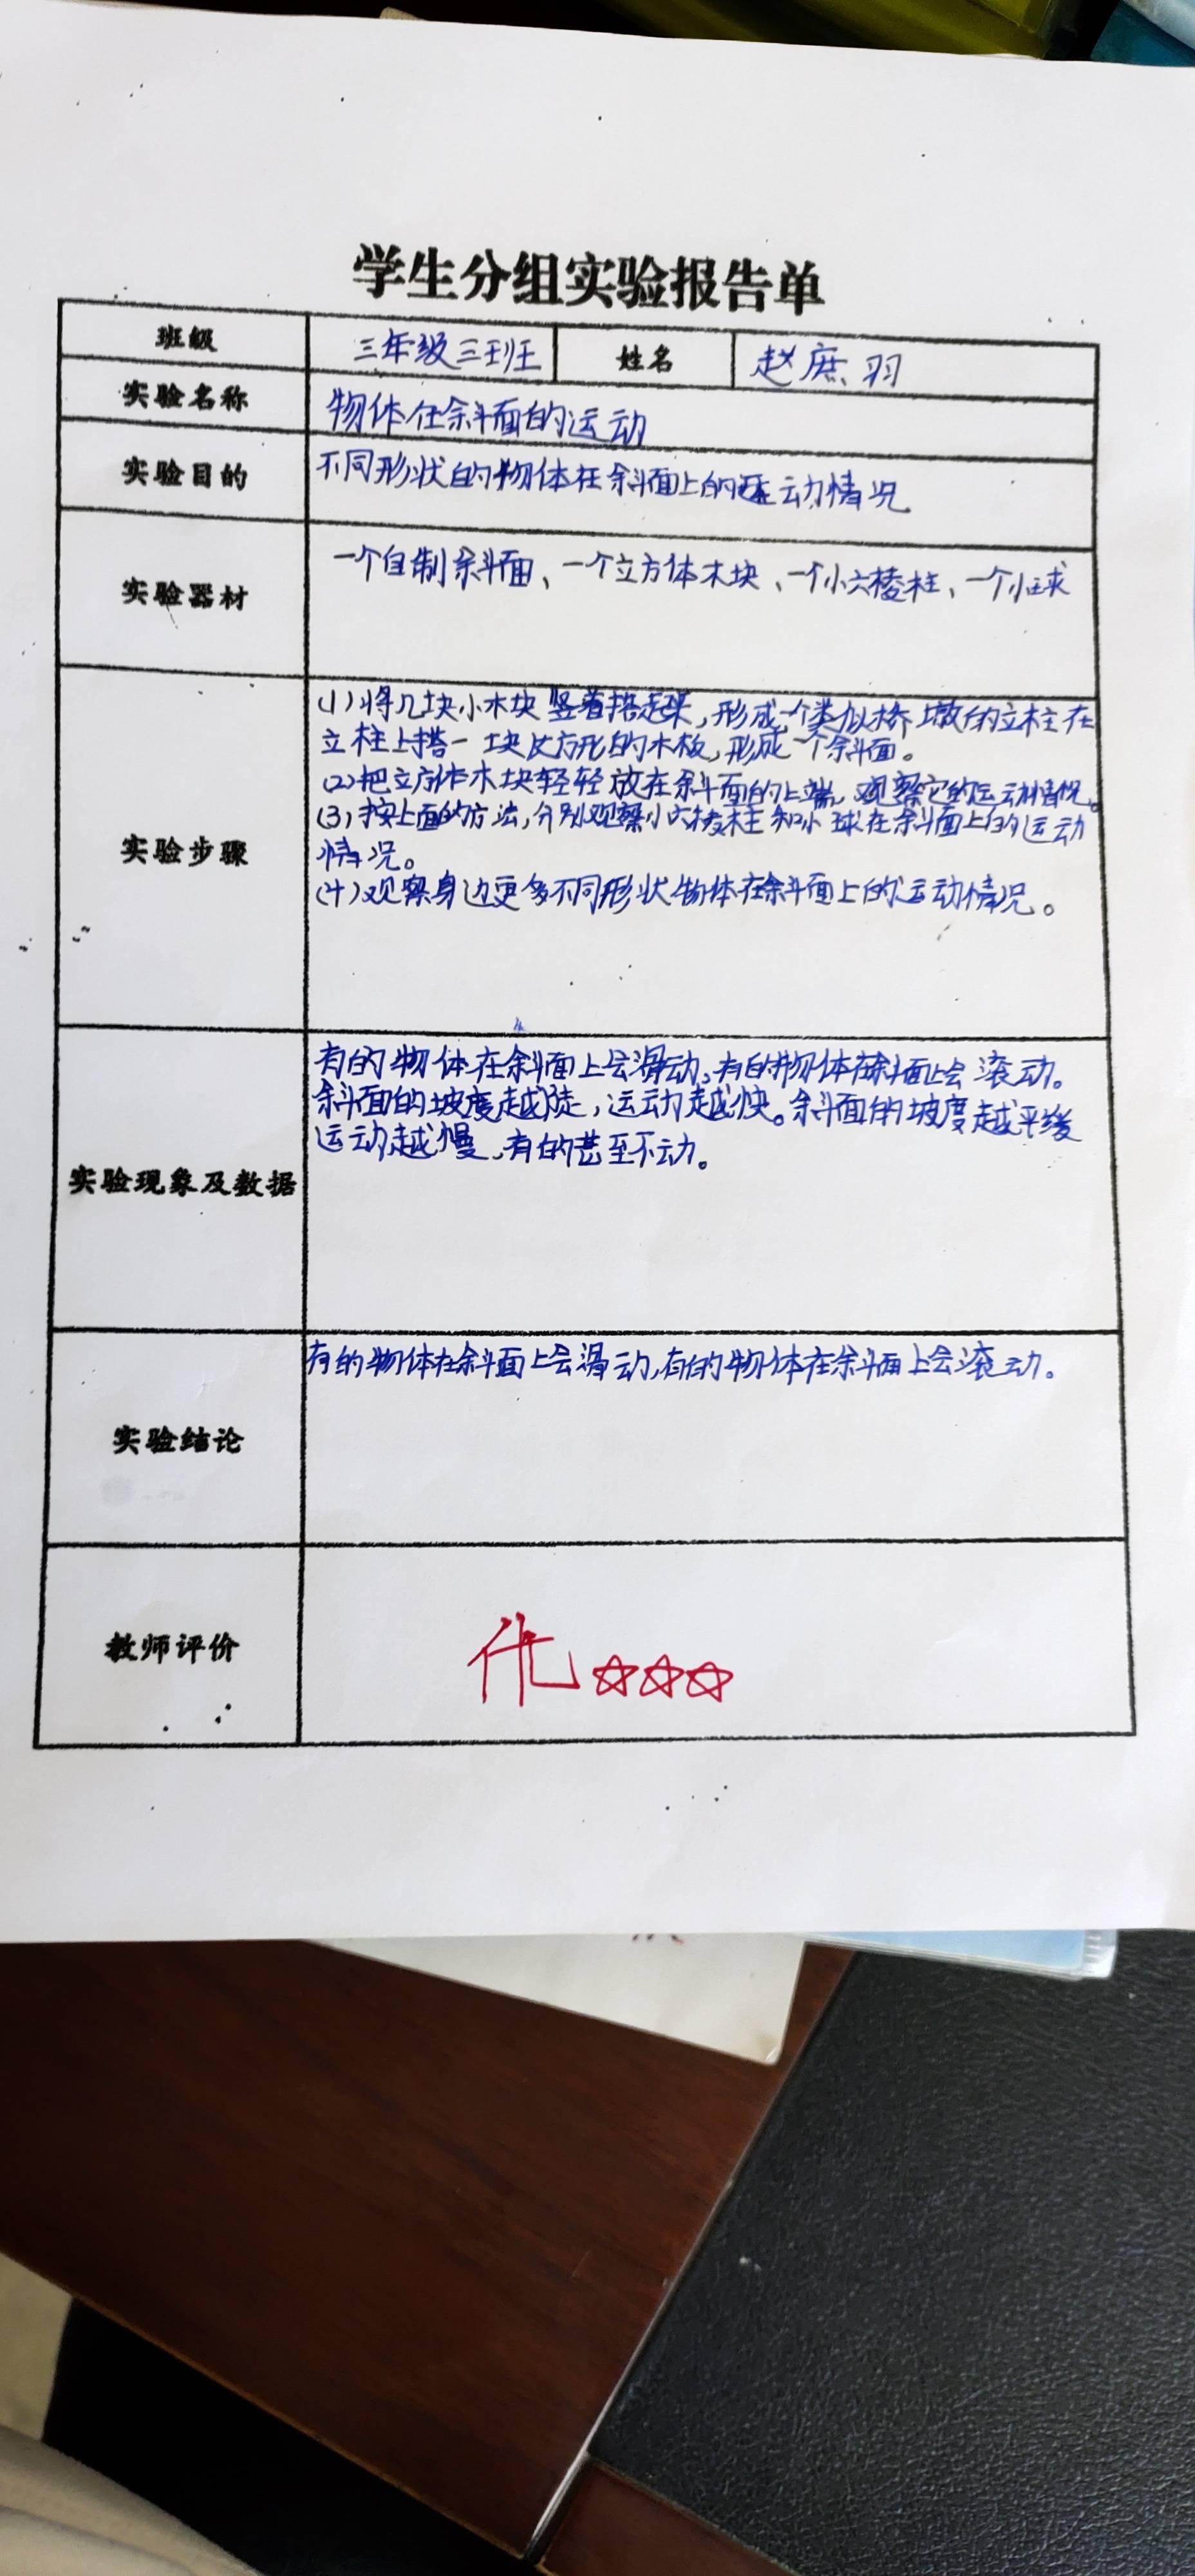 学生分组实验报告单
班级 三年级三班 姓名 赵庶羽
实验名称 物体在斜面的运动
实验目的 不同形状的物体在斜面上的运动情况
实验器材 一个自制斜面、一个立方体木块、一个小六棱柱、一个小球
(1)将几块小木块竖着搭起来,形成一个类似桥墩的立柱在
立柱上搭一块长方形的木板,形成一个斜面。
(2)把立方体木块轻轻放在斜面的上端,观察它的运动情况。
(3)按上面的方法,分别观察小六棱柱和小球在斜面上的运动
实验步骤
情况。
(4)观察身边更多不同形状物体在斜面上的运动情况。
有的物体在斜面上会滑动,有的物体在斜面上会滚动。
斜面的坡度越陡,运动越快。斜面的坡度越平缓
运动越慢,有的甚至不动。
实验现象及数据
有的物体在斜面上会滑动,有的物体在斜面上会滚动。
实验结论
教师评价 优☆☆☆